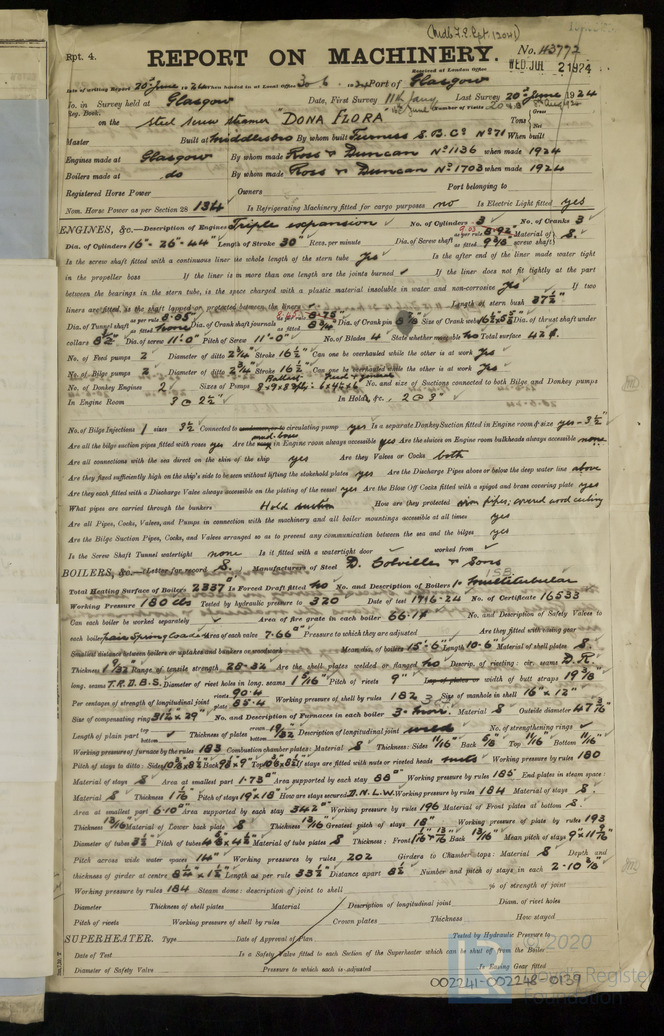 (Mdb F.E. Rpt. 12041)
Rpt. 4.
REPORT ON MACHINERY.
No. 43772
Received at London Office WED. JUL 2 1924
Date of writing Report 20th June 1924 When handed in at Local Office 30 6 1924 Port of Glasgow
No. in Survey held at Glasgow Date, First Survey 11th Jany Last Survey 20th June 1924
Reg. Book. Number of Visits
on the steel screw steamer "DONA FLORA" Tons Gross Net
Master Built at Middlesbro By whom built Furness S.B. Co No 71 When built
Engines made at Glasgow By whom made Ross & Duncan No 1136 when made 1924
Boilers made at do By whom made Ross & Duncan No 1703 when made 1924
Registered Horse Power Owners Port belonging to
Nom. Horse Power as per Section 28 134 Is Refrigerating Machinery fitted for cargo purposes no Is Electric Light fitted yes
ENGINES, &c.—Description of Engines Triple expansion No. of Cylinders 3 No. of Cranks 3
Dia. of Cylinders 16"-26"-44" Length of Stroke 30" Revs. per minute Dia. of Screw shaft as per rule 8.92 as fitted 9 3/8 Material of screw shaft S.
Is the screw shaft fitted with a continuous liner the whole length of the stern tube yes Is the after end of the liner made water tight
in the propeller boss If the liner is in more than one length are the joints burned If the liner does not fit tightly at the part
between the bearings in the stern tube, is the space charged with a plastic material insoluble in water and non-corrosive yes If two
liners are fitted, is the shaft lapped or protected between the liners Length of stern bush 37 1/2"
Dia. of Tunnel shaft as per rule 8.05 as fitted none Dia. of Crank shaft journals as per rule 8.75 as fitted 8 3/4 Dia. of Crank pin Size of Crank webs Dia. of thrust shaft under
collars Dia. of screw 11'-0" Pitch of Screw 11'-0" No. of Blades 4 State whether moveable no Total surface 42
No. of Feed pumps 2 Diameter of ditto 2 3/4 Stroke 16 1/2" Can one be overhauled while the other is at work yes
No. of Bilge pumps 2 Diameter of ditto 2 3/4 Stroke 16 1/2" Can one be overhauled while the other is at work yes
No. of Donkey Engines 2 Sizes of Pumps Ballast 8x9x8 Feed & general 6x4x6 No. and size of Suctions connected to both Bilge and Donkey pumps
In Engine Room 3 @ 2 1/2" In Holds, &c., 2 @ 3"
No. of Bilge Injections 1 sizes 3 1/2 Connected to circulating pump yes Is a separate Donkey Suction fitted in Engine room & size yes - 3 1/2"
Are all the bilge suction pipes fitted with roses yes Are the mud-boxes in Engine room always accessible yes Are the sluices on Engine room bulkheads always accessible none
Are all connections with the sea direct on the skin of the ship yes Are they Valves or Cocks both
Are they fixed sufficiently high on the ship's side to be seen without lifting the stokehold plates yes Are the Discharge Pipes above or below the deep water line above
Are they each fitted with a Discharge Valve always accessible on the plating of the vessel yes Are the Blow Off Cocks fitted with a spigot and brass covering plate yes
What pipes are carried through the bunkers Hold suction How are they protected iron pipes; covered wood ceiling
Are all Pipes, Cocks, Valves, and Pumps in connection with the machinery and all boiler mountings accessible at all times yes
Are the Bilge Suction Pipes, Cocks, and Valves arranged so as to prevent any communication between the sea and the bilges yes
Is the Screw Shaft Tunnel watertight none Is it fitted with a watertight door worked from
BOILERS, &c.—(Letter for record S.) Manufacturers of Steel D. Colville & Sons
Total Heating Surface of Boilers 2337 Is Forced Draft fitted no No. and Description of Boilers 1 multitubular
Working Pressure 180 lbs Tested by hydraulic pressure to 320 Date of test No. of Certificate 16533
Can each boiler be worked separately Area of fire grate in each boiler No. and Description of Safety Valves to
each boiler pair Spring loaded Area of each valve 7.66" Pressure to which they are adjusted Are they fitted with easing gear
Smallest distance between boilers or uptakes and bunkers or woodwork Mean dia. of boilers 15'-6" Length 10-6" Material of shell plates S.
Thickness 1 9/32 Range of tensile strength 28-32 Are the shell plates welded or flanged no Descrip. of riveting: cir. seams D.R.
long. seams T.R.D.B.S. Diameter of rivet holes in long. seams 1 5/16 Pitch of rivets 9" width of butt straps 19 3/8"
Per centages of strength of longitudinal joint rivets 90.4 plate 85.4 Working pressure of shell by rules 182 Size of manhole in shell 16" x 12"
Size of compensating ring 31 1/2" x 29" No. and Description of Furnaces in each boiler 3 Material S Outside diameter
Length of plain part top bottom Thickness of plates Description of longitudinal joint weld No. of strengthening rings
Working pressure of furnace by the rules 183 Combustion chamber plates: Material S Thickness: Sides 11/16" Back 5/8" Top 11/16" Bottom 11/16"
Pitch of stays to ditto: Sides Back Top If stays are fitted with nuts or riveted heads nuts Working pressure by rules 180
Material of stays S Area at smallest part 1.73" Area supported by each stay 88" Working pressure by rules 185 End plates in steam space:
Material S Thickness Pitch of stays 19 x 18" How are stays secured D.N.L.W. Working pressure by rules 184 Material of stays S.
Area at smallest part Area supported by each stay 342" Working pressure by rules 196 Material of Front plates at bottom S.
Thickness 13/16" Material of Lower back plate S Thickness 13/16" Greatest pitch of stays 18" Working pressure of plate by rules 193
Diameter of tubes 3 1/2" Pitch of tubes Material of tube plates S Thickness: Front Back 13/16" Mean pitch of stays
Pitch across wide water spaces 14" Working pressures by rules 202 Girders to Chamber tops: Material S Depth and
thickness of girder at centre Length as per rule 33 1/2" Distance apart 8 1/2 Number and pitch of stays in each
Working pressure by rules 184 Steam dome: description of joint to shell % of strength of joint
Diameter Thickness of shell plates Material Description of longitudinal joint Diam. of rivet holes
Pitch of rivets Working pressure of shell by rules Crown plates Thickness How stayed
SUPERHEATER. Type Date of Approval of Plan Tested by Hydraulic Pressure to
Date of Test Is a Safety Valve fitted to each Section of the Superheater which can be shut off from the Boiler
Diameter of Safety Valve Pressure to which each is adjusted Is Easing Gear fitted
© 2020
Lloyd's Register
Foundation
002241-002248-0139